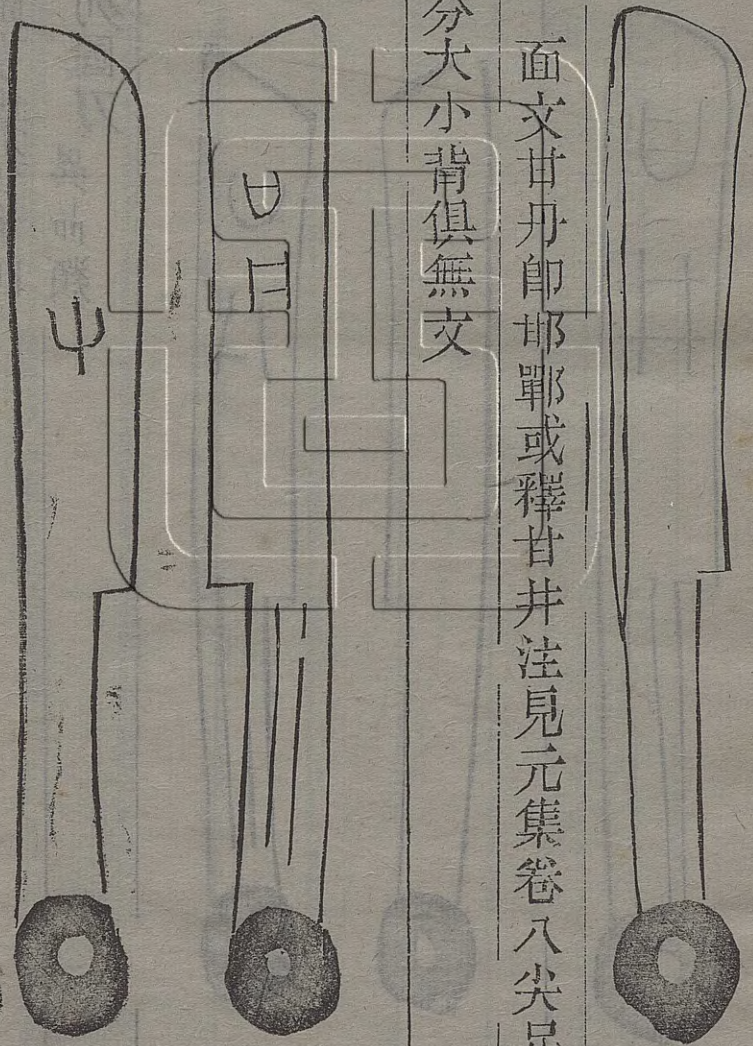 面文甘丹卽邯鄲或釋甘井注見元集卷八尖足
分大小背俱無文
甘丹